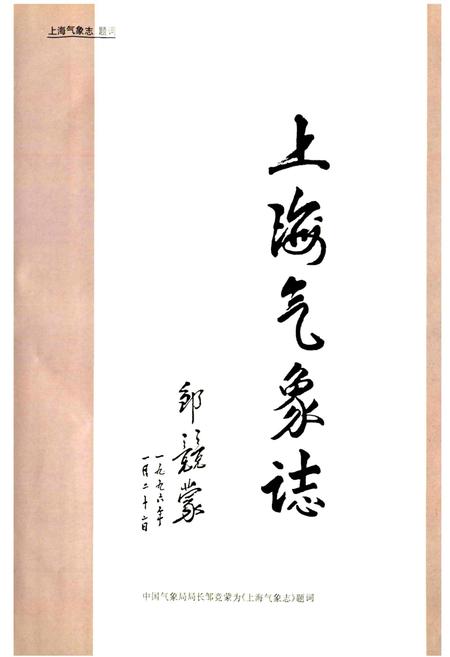 上海气象志 题词
上海气象誌
邹競蒙
一九九六年
一月二十二日
中国气象局局长邹竞蒙为《上海气象志》题词